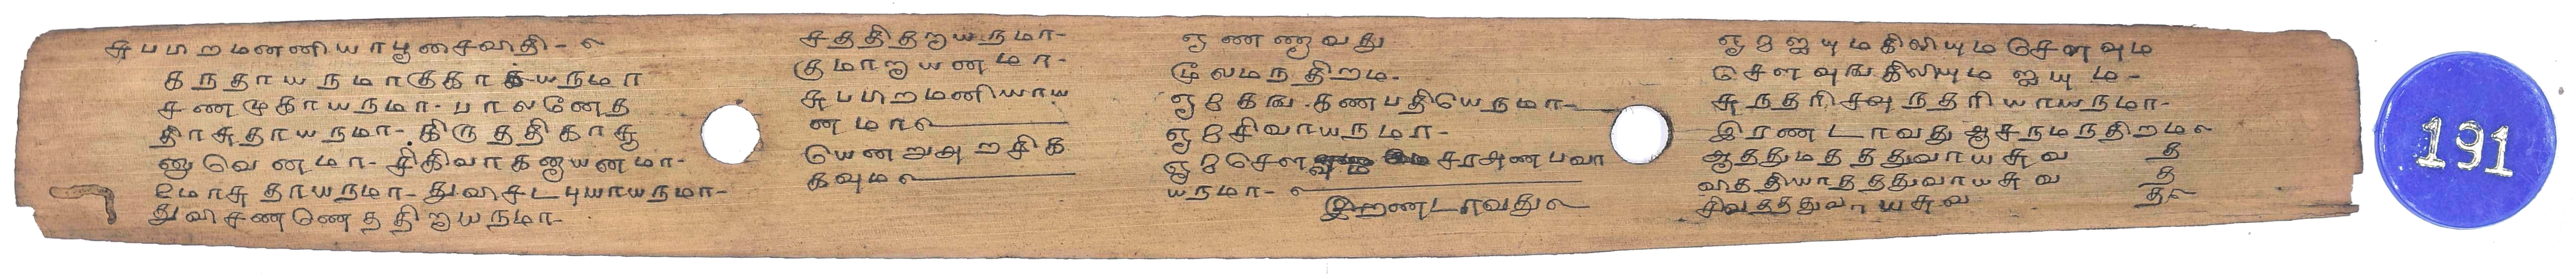 சுபபிறமணணியாபூசைவிதி-
கநதாயநமாகுகாகயநமா
சணமுகாயநமா-பாலனேத
திாசுதாயநமா-கிருததிகாசூ
னுவெனமா-சிகிவாகனுயனமா-
மோசுதாயநமா-துவிசடபுயாயநமா-
துவிசணணெததிறுயநமா-
சததிதறுயநமா-
குமாறுயணமா-
சுபபிறமணியாய
னமா
யெனறுஅறசிக
கவும
ஒணணுவது
மூலமநதிறம-
ஓ கஙகணபதியெநமா-
ஓ சிவாயநமா-
ஓ சௌ சரஅணபவா
யநமா-
இறணடாவது
ஓ ஐயுமகிலியுமசௌவும
சௌவுஙகிலியும ஐயும-
சுநதரிசவுநதரியாயநமா-
இரணடாவதுஆசநமநதிறம
ஆததுமதததுவாயசுவ தி
விததியாதததுவாயசுவ தி
சிவதததுவாயசுவ தி
191